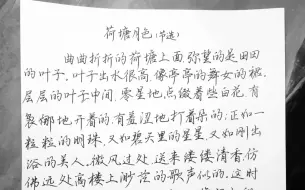 荷塘月色(节选)
曲曲折折的荷塘上面,弥望的是田田
的叶子。叶子出水很高,像亭亭的舞女的裙。
层层的叶子中间,零星地点缀着些白花,有
袅娜地开着的,有羞涩地打着朵的;正如一
粒粒的明珠,又如碧天里的星星,又如刚出
浴的美人。微风过处,送来缕缕清香,仿
佛远处高楼上渺茫的歌声似的。这时